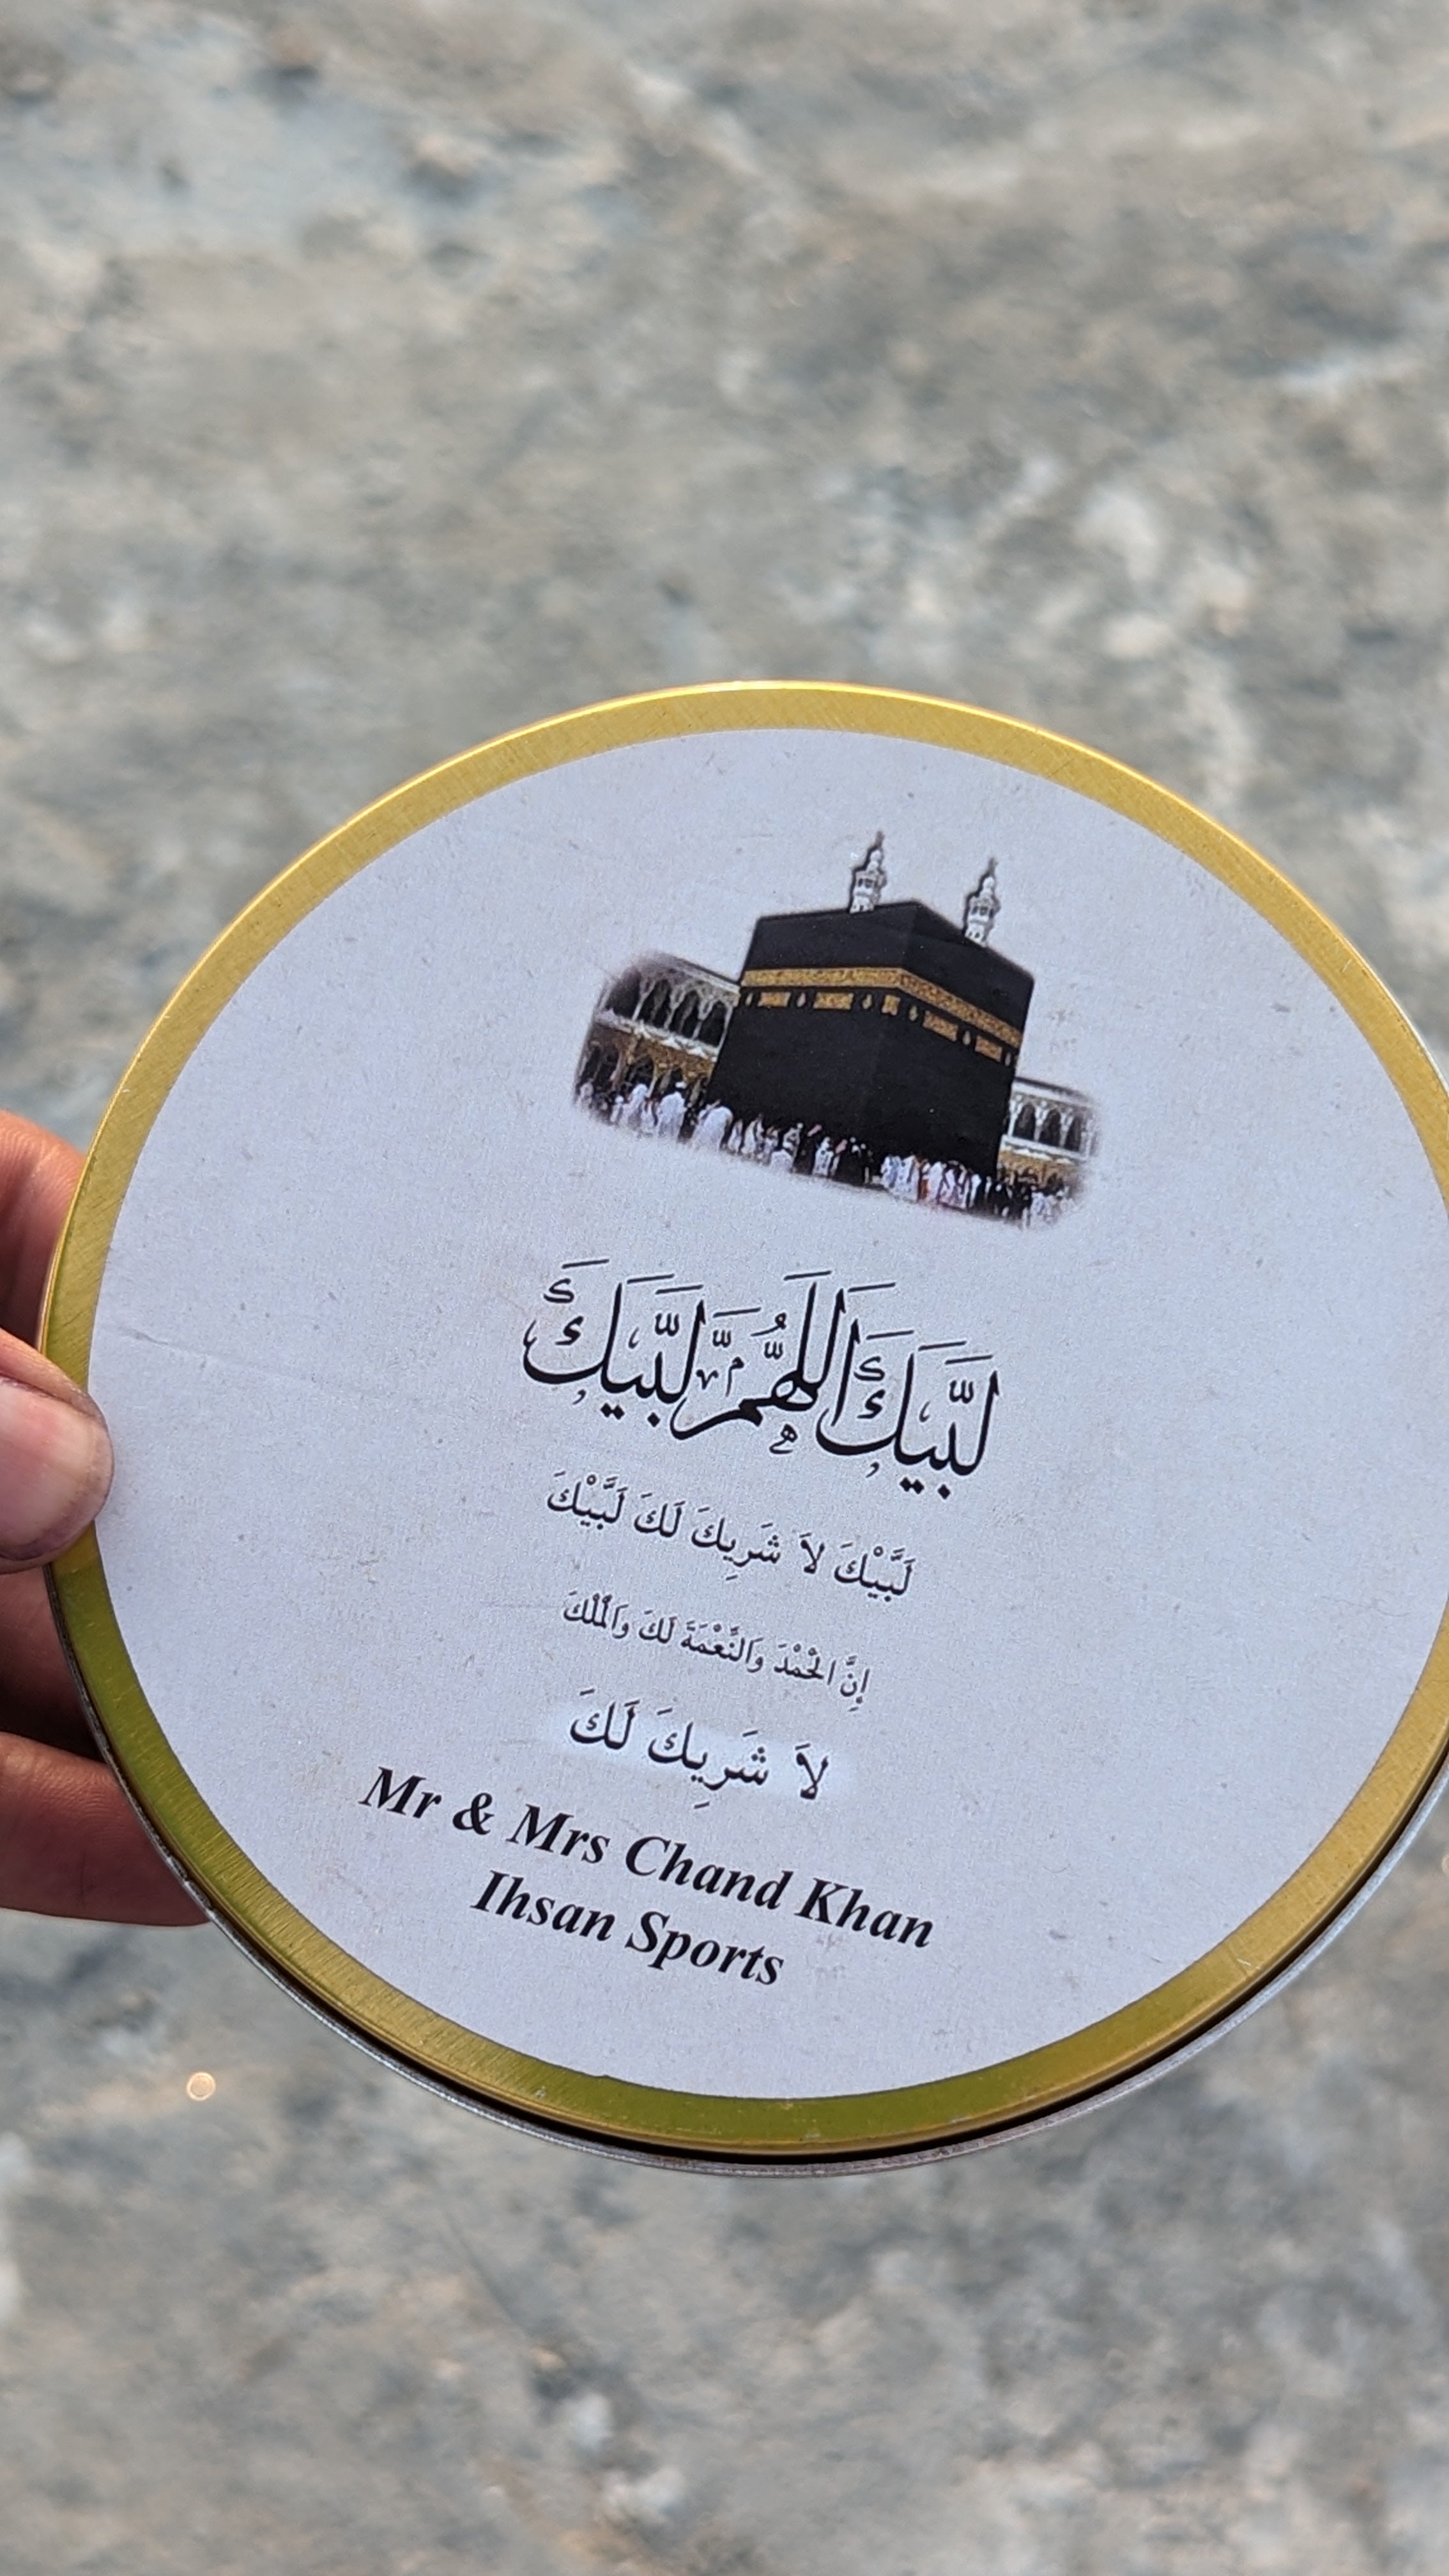 لَبَّيْكَ اللَّهُمَّ لَبَّيْكَ
لَبَّيْكَ لاَ شَرِيكَ لَكَ لَبَّيْكَ
إِنَّ الْحَمْدَ وَالنِّعْمَةَ لَكَ وَالْمُلْكَ
لاَ شَرِيكَ لَكَ
Mr & Mrs Chand Khan
Ihsan Sports